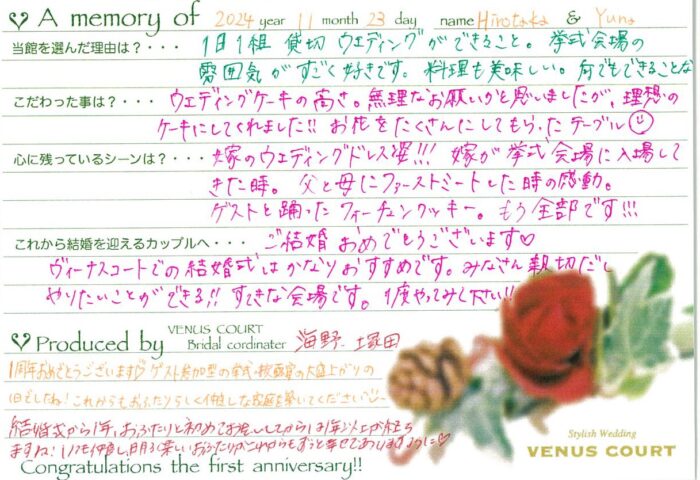 ♡ A memory of 2024 year 11 month 23 day name Hirotaka & Yuna
当館を選んだ理由は？・・・ 1日1組 貸切 ウエディングができること。 挙式会場の
雰囲気がすごく好きです。 料理も美味しい。 何でもできることな
こだわった事は？・・・ ウエディングケーキの高さ。無理なお願いかと思いましたが、理想の
ケーキにしてくれました!! お花をたくさんにしてもらったテーブル☺
心に残っているシーンは？・・・ 嫁のウエディングドレス姿!!! 嫁が挙式会場に入場して
きた時。 父と母にファーストミートした時の感動。
ゲストと踊ったフォーチュンクッキー。 もう全部です!!!
これから結婚を迎えるカップルへ・・・ ご結婚おめでとうございます♡
ヴィーナスコートでの結婚式はかなりおすすめです。みなさん親切だし
やりたいことができる!! すてきな会場です。 1度やってみて下さい!!
♡ Produced by VENUS COURT Bridal cordinater 海野、塚田
1周年おめでとうございます♡ ゲスト参加型の挙式・披露宴の大盛上がりの
1日でしたね! これからもおふたりらしく仲良しな家庭を築いてくださいね
結婚式から1年、おふたりと初めてお会いしてからは1年以上が経ち
ますね! いつも仲良し明るい おふたりがこれからもずっと幸せでありますように♡
Congratulations the first anniversary!!
Stylish Wedding
VENUS COURT